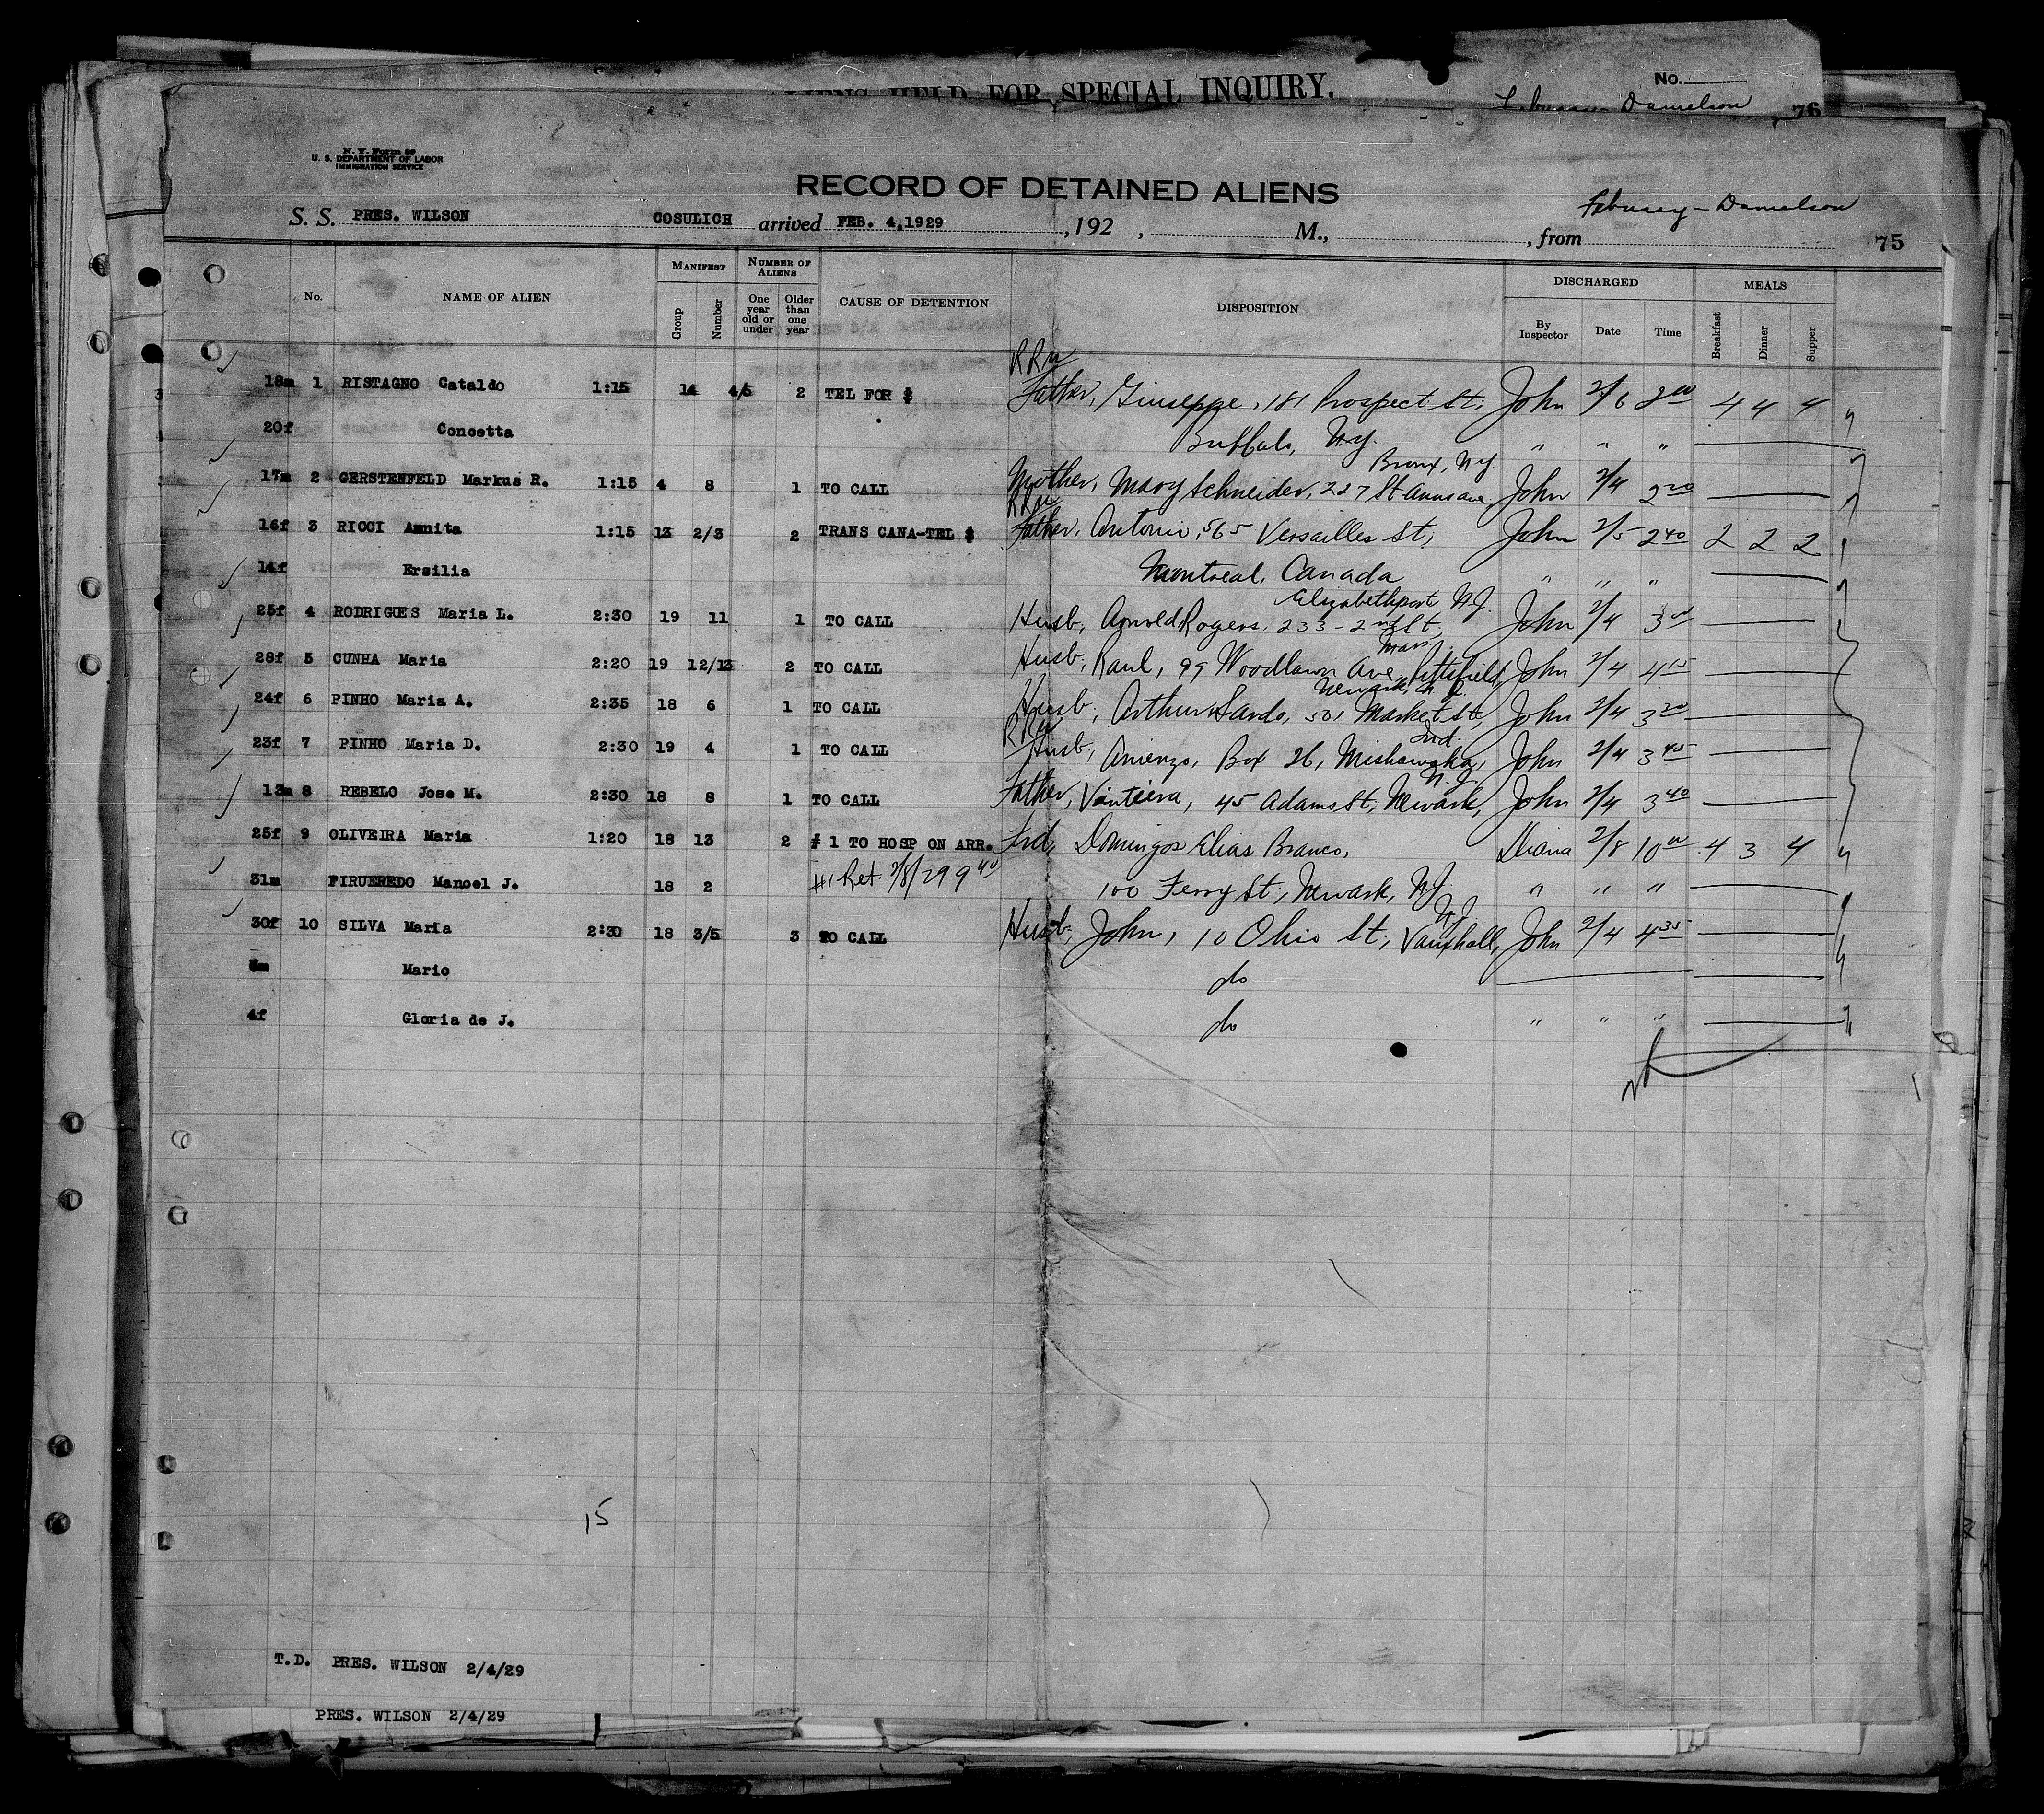 ALIENS HELD FOR SPECIAL INQUIRY.
No.
Danielson 76
N. Y. Form 89
U. S. DEPARTMENT OF LABOR
IMMIGRATION SERVICE
RECORD OF DETAINED ALIENS
Danielson
S. S. PRES. WILSON COSULICH arrived FEB. 4,1929 ,192 , M., , from 75
No. NAME OF ALIEN MANIFEST Group Number NUMBER OF ALIENS One year old or under Older than one year CAUSE OF DETENTION DISPOSITION DISCHARGED By Inspector Date Time MEALS Breakfast Dinner Supper
18m 1 RISTAGNO Cataldo 1:15 14 4/5 2 TEL FOR $ Father, Giuseppe, 181 Prospect St, John 2/6 2 00 4 4 4
20f Concetta Buffalo, N.Y. " " "
Bronx, N.Y.
17m 2 GERSTENFELD Markus R. 1:15 4 8 1 TO CALL Mother, Mary Schneider, 227 St Anns ave. John 2/4 2 20
16f 3 RICCI Annita 1:15 13 2/3 2 TRANS CANA-TEL $ Father, Antonio, 565 Versailles St, John 2/5 2 40 2 2 2
14f Ersilia Montreal, Canada " " "
Elizabethport N.J.
25f 4 RODRIGUES Maria L. 2:30 19 11 1 TO CALL Husb, Arnold Rogers, 233 - 2nd St, John 2/4 3 00
Mass.
28f 5 CUNHA Maria 2:20 19 12/13 2 TO CALL Husb, Raul, 99 Woodlawn Ave, Pittsfield, John 2/4 4 15
Newark, N.J.
24f 6 PINHO Maria A. 2:35 18 6 1 TO CALL Husb, Arthur 501 Market St, John 2/4 3 20
Ind.
23f 7 PINHO Maria D. 2:30 19 4 1 TO CALL Husb, Box 26, Mishawaka, John 2/4 3 45
N.J.
13m 8 REBELO Jose M. 2:30 18 8 1 TO CALL Father, 45 Adams St, Newark, John 2/4 3 40
25f 9 OLIVEIRA Maria 1:20 18 13 2 # 1 TO HOSP ON ARR. Frd, Domingos Elias Branco, Diana 2/8 10 00 4 3 4
31m FIRUEREDO Manoel J. 18 2 #1 Ret 2/8/29 9 40 100 Ferry St, Newark, N.J. " " "
N.J.
30f 10 SILVA Maria 2:30 18 3/5 3 TO CALL Husb, John, 10 Ohio St, Vauxhall, John 2/4 4 35
Mario do
4f Gloria de J. do " " "
15
T.D. PRES. WILSON 2/4/29
PRES. WILSON 2/4/29